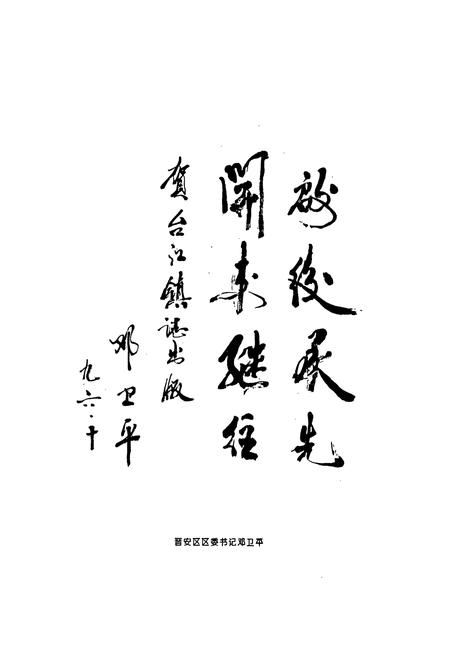 啟後承先
開來繼往
贺台江镇誌出版
邓卫平
九六·十
晋安区区委书记邓卫平